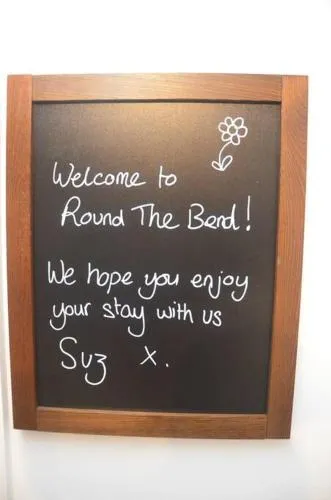 Welcome to
Round The Bend!
We hope you enjoy
your stay with us
Suz x.